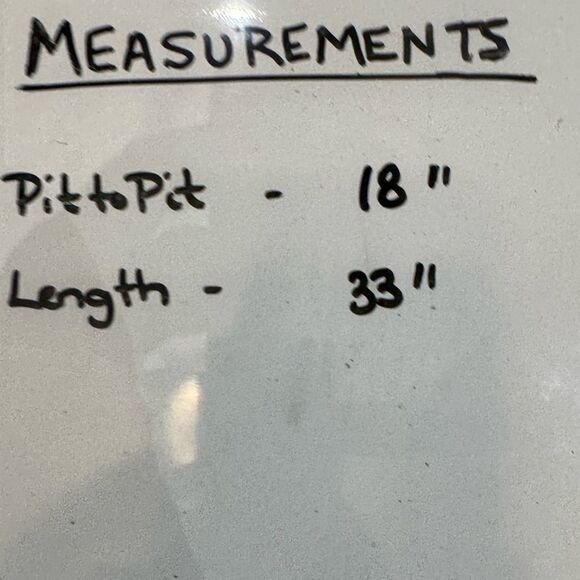 MEASUREMENTS
Pit to Pit - 18"
Length - 33"